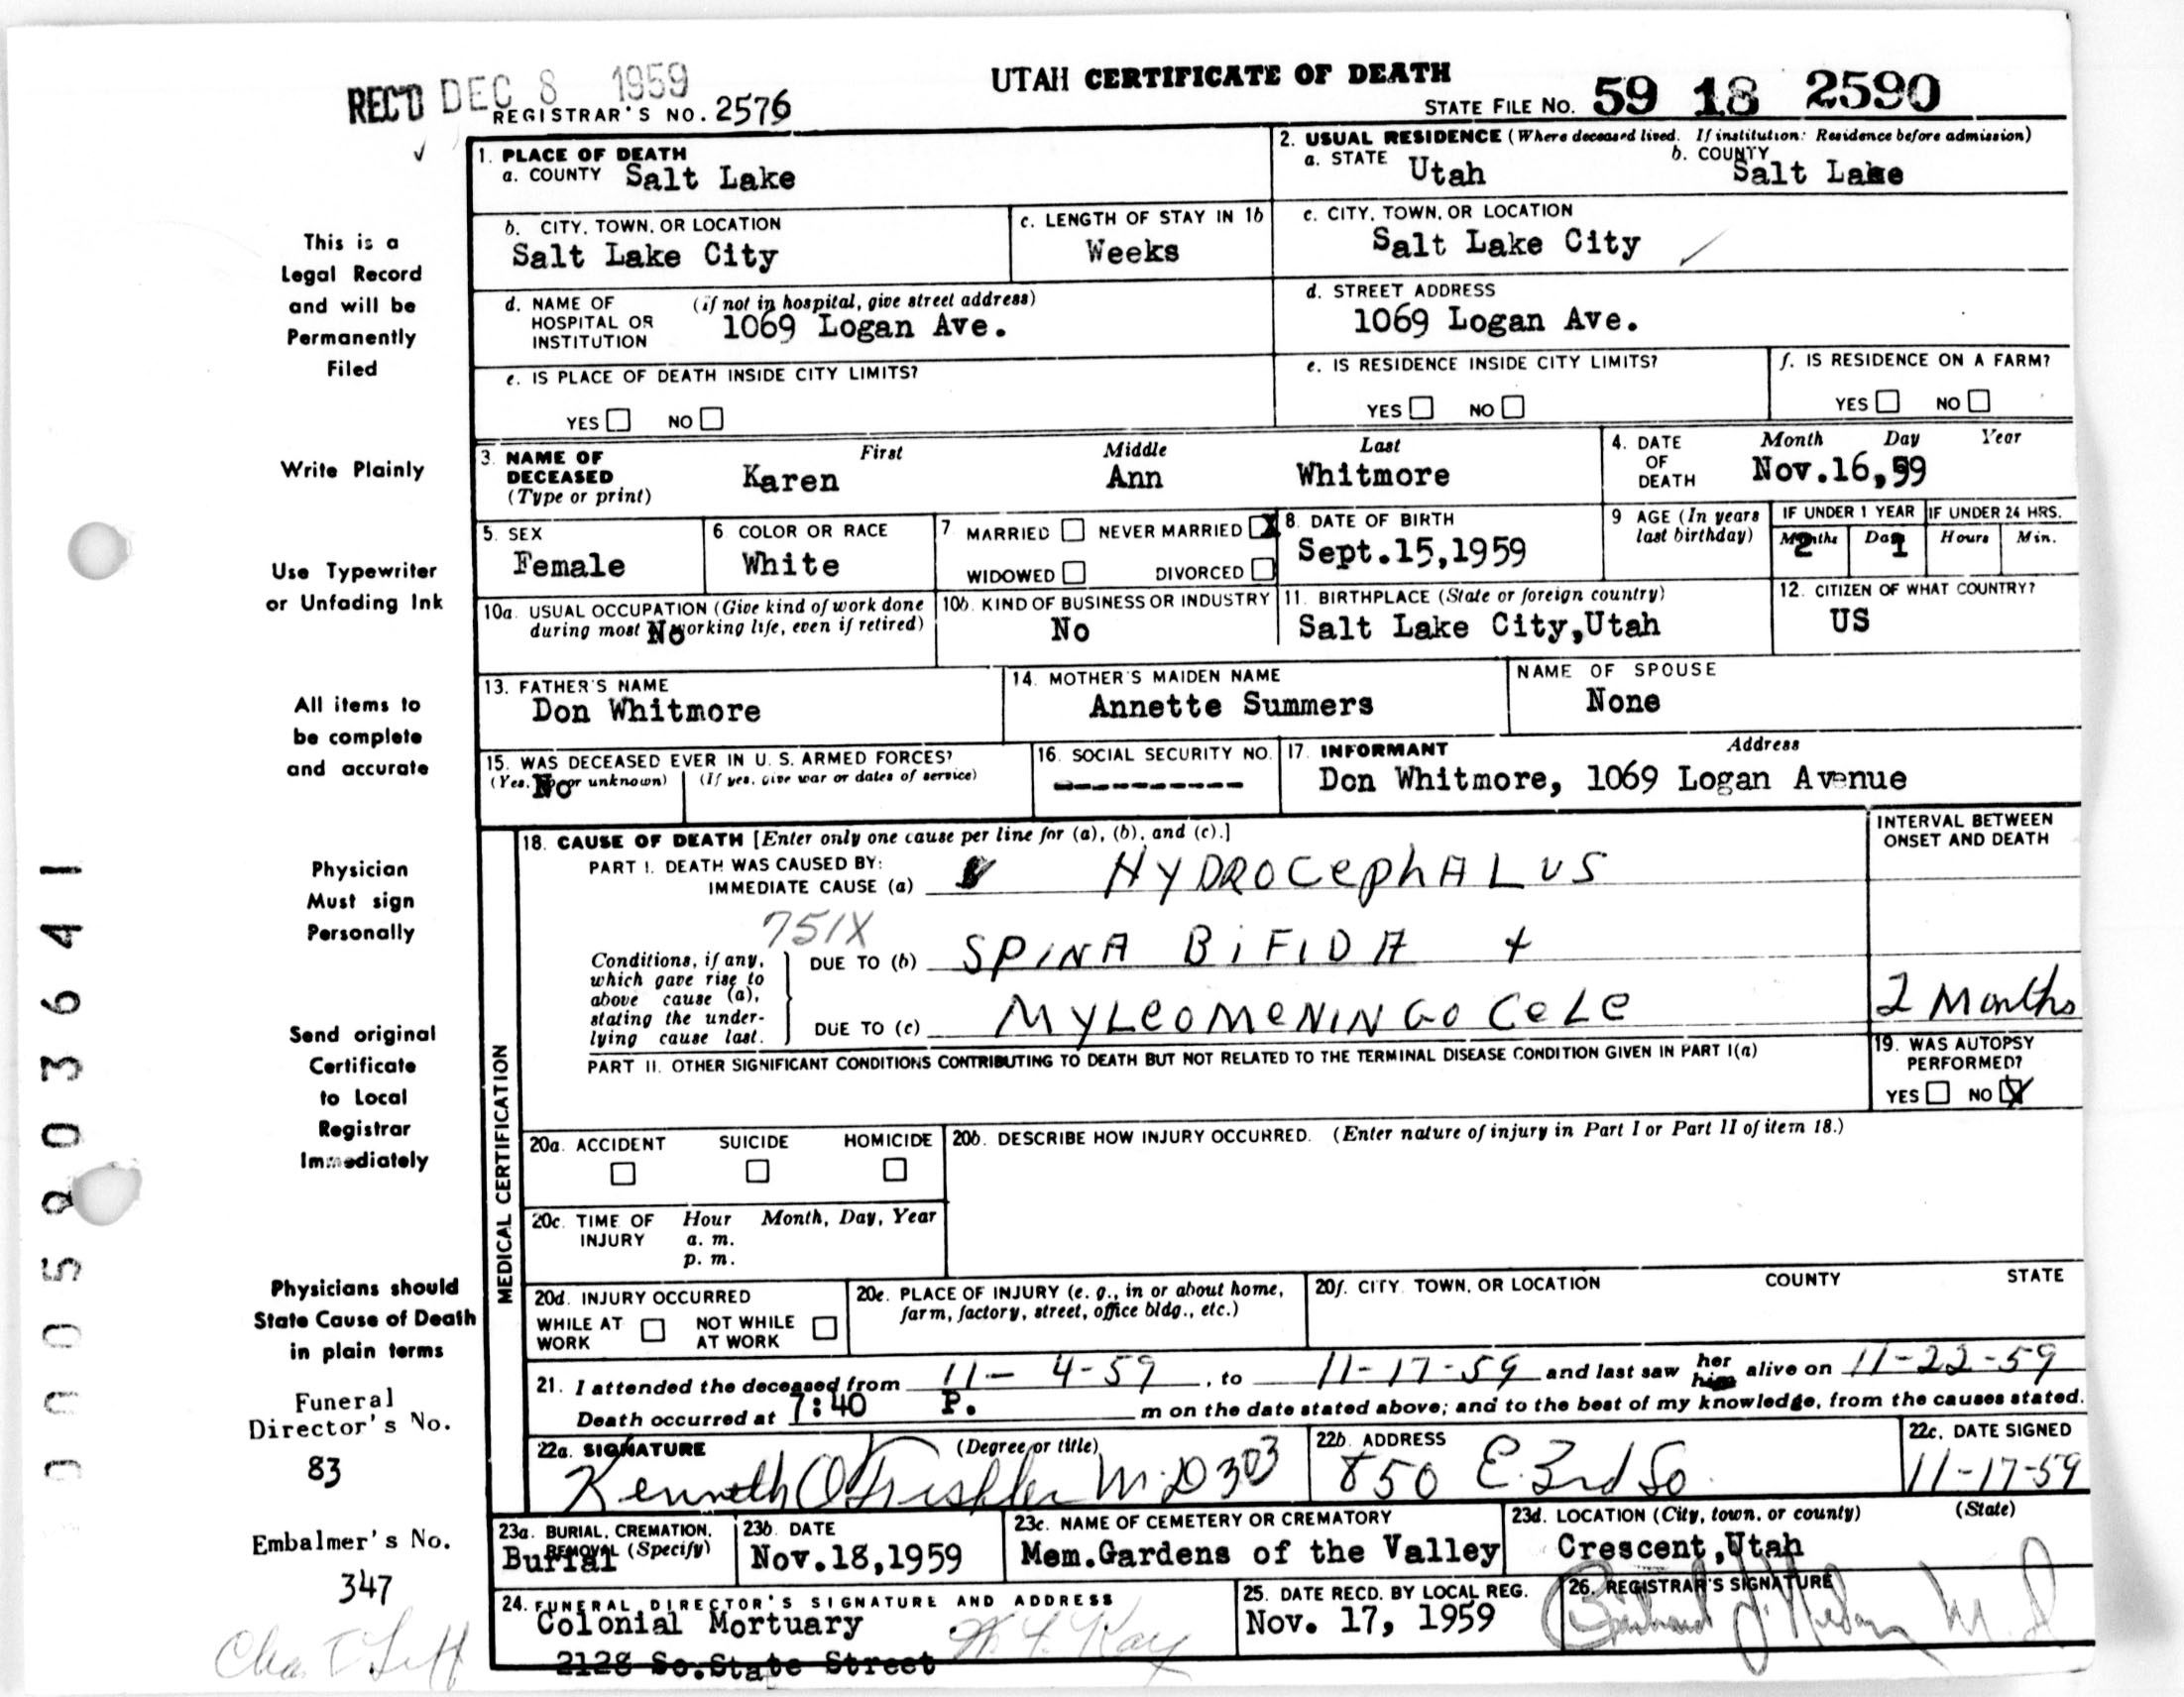 UTAH CERTIFICATE OF DEATH
REC'D DEC 8 1959
REGISTRAR'S NO. 2576
STATE FILE NO. 59 18 2590
1. PLACE OF DEATH
a. COUNTY Salt Lake
2. USUAL RESIDENCE (Where deceased lived. If institution: Residence before admission)
a. STATE Utah b. COUNTY Salt Lake
b. CITY, TOWN, OR LOCATION
Salt Lake City
c. LENGTH OF STAY IN 1b
Weeks
c. CITY, TOWN, OR LOCATION
Salt Lake City
d. NAME OF HOSPITAL OR INSTITUTION (if not in hospital, give street address)
1069 Logan Ave.
d. STREET ADDRESS
1069 Logan Ave.
e. IS PLACE OF DEATH INSIDE CITY LIMITS?
YES NO
e. IS RESIDENCE INSIDE CITY LIMITS?
YES NO
f. IS RESIDENCE ON A FARM?
YES NO
3. NAME OF DECEASED (Type or print)
First Middle Last
Karen Ann Whitmore
4. DATE OF DEATH Month Day Year
Nov.16,59
5. SEX
Female
6 COLOR OR RACE
White
7 MARRIED NEVER MARRIED X
WIDOWED DIVORCED
8. DATE OF BIRTH
Sept.15,1959
9 AGE (In years last birthday)
IF UNDER 1 YEAR IF UNDER 24 HRS.
Months 2 Days 1 Hours Min.
10a. USUAL OCCUPATION (Give kind of work done during most of working life, even if retired)
No
10b. KIND OF BUSINESS OR INDUSTRY
No
11. BIRTHPLACE (State or foreign country)
Salt Lake City,Utah
12. CITIZEN OF WHAT COUNTRY?
US
13. FATHER'S NAME
Don Whitmore
14. MOTHER'S MAIDEN NAME
Annette Summers
NAME OF SPOUSE
None
15. WAS DECEASED EVER IN U. S. ARMED FORCES?
(Yes, no, or unknown) (If yes, give war or dates of service)
No
16. SOCIAL SECURITY NO.
----------
17. INFORMANT Address
Don Whitmore, 1069 Logan Avenue
MEDICAL CERTIFICATION
18. CAUSE OF DEATH [Enter only one cause per line for (a), (b), and (c).]
INTERVAL BETWEEN ONSET AND DEATH
PART I. DEATH WAS CAUSED BY:
IMMEDIATE CAUSE (a) HYDROCephALUS
751X
Conditions, if any, which gave rise to above cause (a), stating the underlying cause last.
DUE TO (b) SPINA BiFIDA +
DUE TO (c) MYLeOMeNINGOCeLe
2 Months
PART II. OTHER SIGNIFICANT CONDITIONS CONTRIBUTING TO DEATH BUT NOT RELATED TO THE TERMINAL DISEASE CONDITION GIVEN IN PART I(a)
19. WAS AUTOPSY PERFORMED?
YES NO X
20a. ACCIDENT SUICIDE HOMICIDE
20b. DESCRIBE HOW INJURY OCCURRED. (Enter nature of injury in Part I or Part II of item 18.)
20c. TIME OF INJURY Hour Month, Day, Year
a. m.
p. m.
20d. INJURY OCCURRED
WHILE AT WORK NOT WHILE AT WORK
20e. PLACE OF INJURY (e. g., in or about home, farm, factory, street, office bldg., etc.)
20f. CITY, TOWN, OR LOCATION COUNTY STATE
21. I attended the deceased from 11-4-59, to 11-17-59 and last saw her him alive on 11-22-59
Death occurred at 7:40 P. m on the date stated above; and to the best of my knowledge, from the causes stated.
22a. SIGNATURE (Degree or title)
Kenneth O M.D 303
22b. ADDRESS
850 E. 3rd So.
22c. DATE SIGNED
11-17-59
23a. BURIAL, CREMATION, REMOVAL (Specify)
Burial
23b. DATE
Nov.18,1959
23c. NAME OF CEMETERY OR CREMATORY
Mem.Gardens of the Valley
23d. LOCATION (City, town, or county) (State)
Crescent,Utah
24. FUNERAL DIRECTOR'S SIGNATURE AND ADDRESS
Colonial Mortuary
2128 So.State Street
25. DATE RECD. BY LOCAL REG.
Nov. 17, 1959
26. REGISTRAR'S SIGNATURE
This is a
Legal Record
and will be
Permanently
Filed
Write Plainly
Use Typewriter
or Unfading Ink
All items to
be complete
and accurate
Physician
Must sign
Personally
Send original
Certificate
to Local
Registrar
Immediately
Physicians should
State Cause of Death
in plain terms
Funeral
Director's No.
83
Embalmer's No.
347